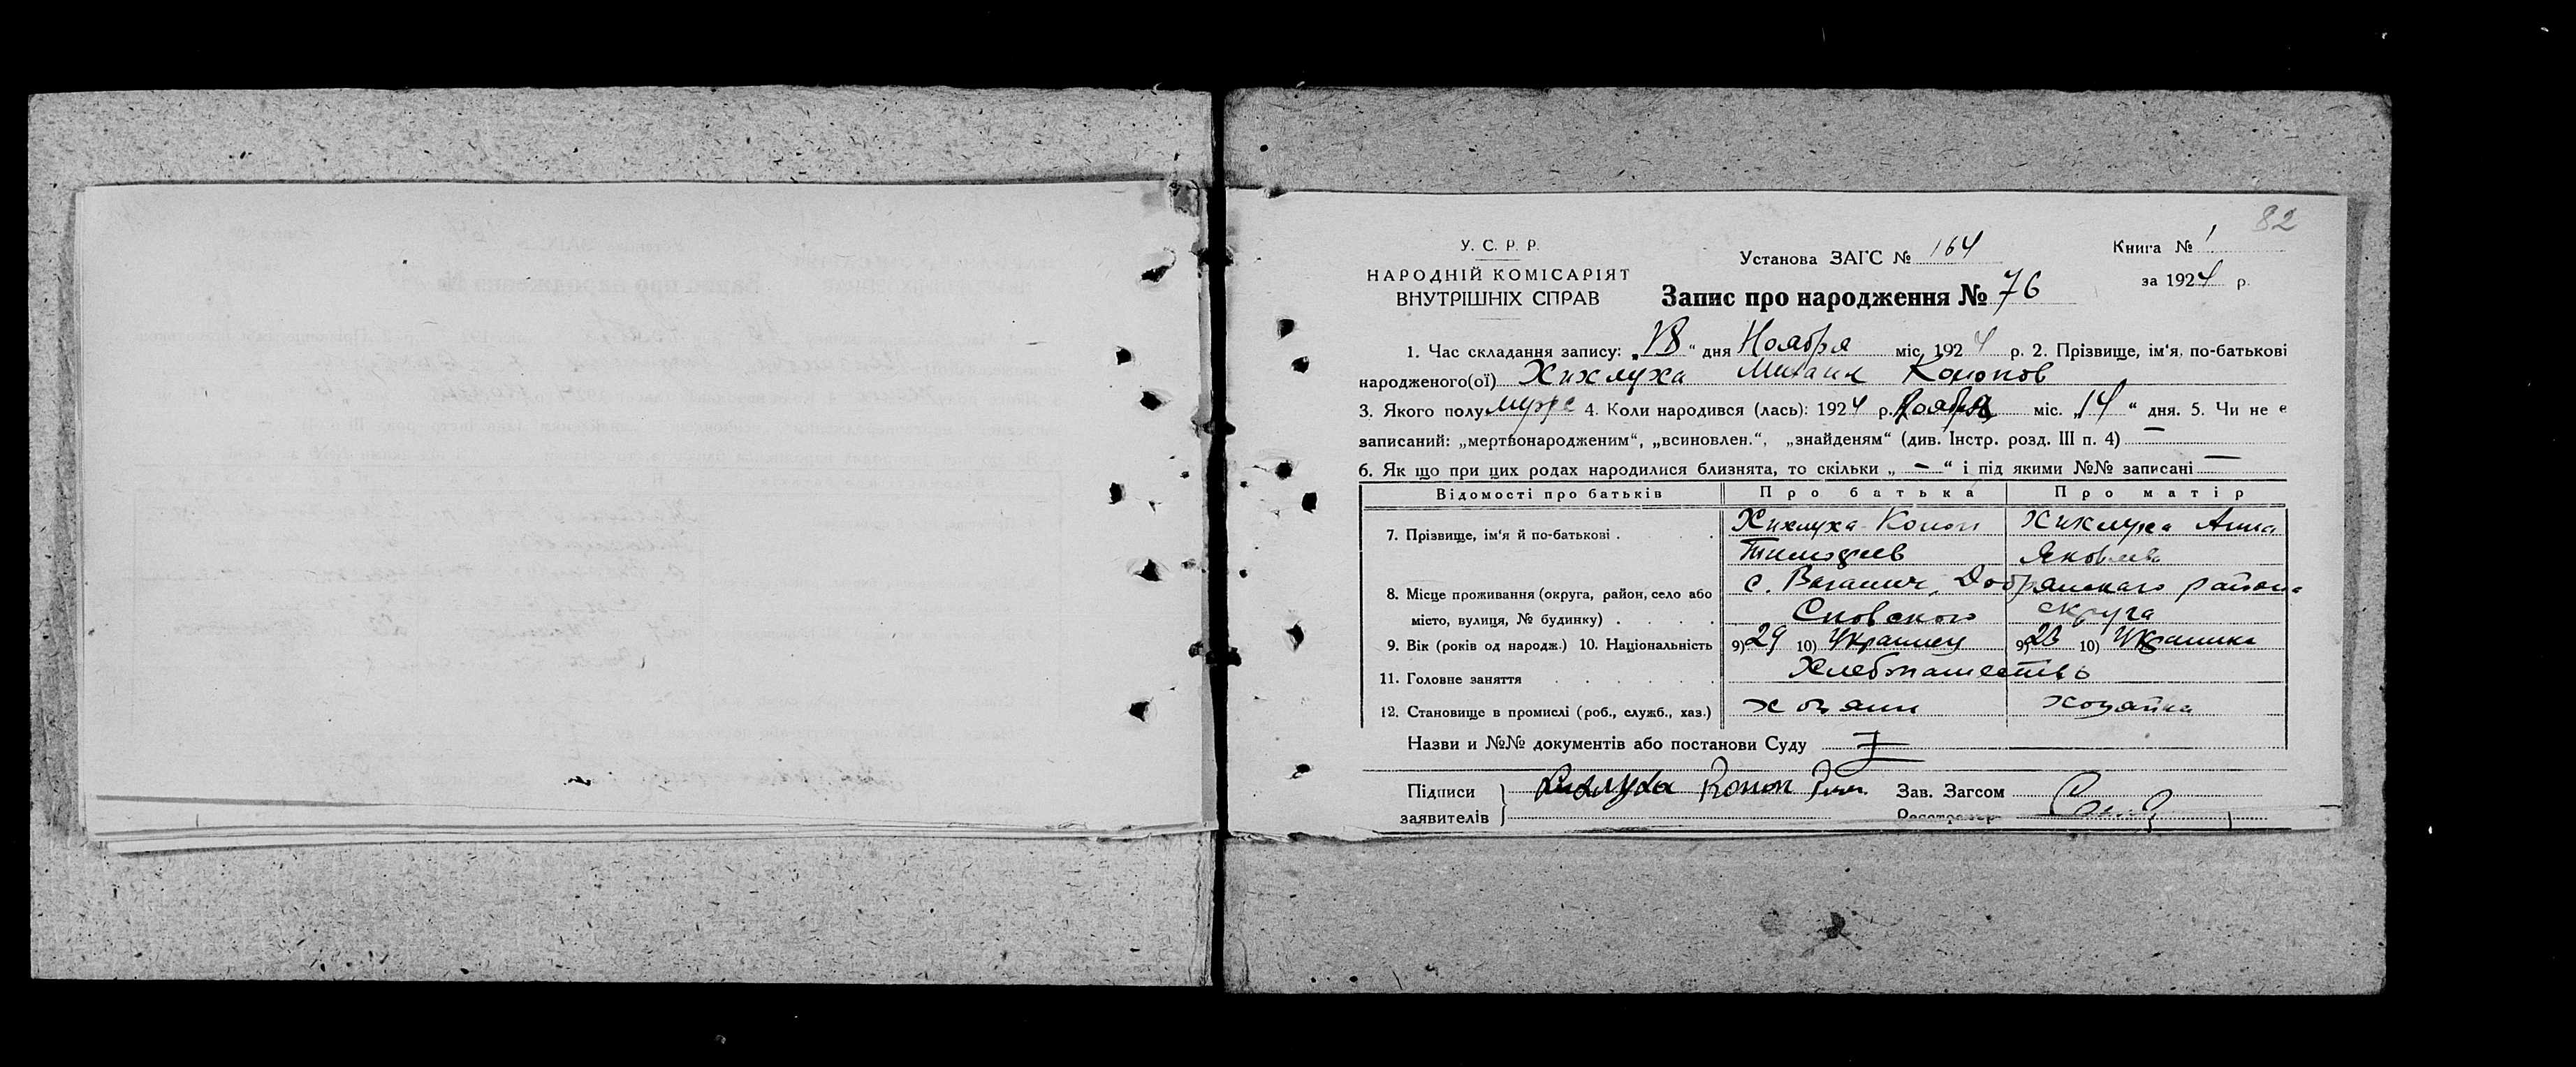 82
У. С. Р. Р.
НАРОДНІЙ КОМІСАРІЯТ
ВНУТРІШНІХ СПРАВ
Установа ЗАГС № 164
Запис про народження № 76
Книга № 1
за 1924 р.
1. Час складання запису: „18“ дня Ноября міс. 1924 р. 2. Прізвище, ім'я, по-батькові
народженого(ої) Хихлуха Михаил Кононов
3. Якого полу муж 4. Коли народився (лась): 1924 р. Ноября міс. „14“ дня. 5. Чи не є
записаний: „мертвонародженим“, „всиновлен.“, „знайденям“ (див. Інстр. розд. III п. 4) —
6. Як що при цих родах народилися близнята, то скільки „—“ і під якими №№ записані —
Відомості про батьків Про батька Про матір
7. Прізвище, ім'я й по-батькові . . Хихлуха Конон Хихлуха Анна
Тимофеев Яковлева
8. Місце проживання (округа, район, село або с. Ваганич, Добрянскаго района
місто, вулиця, № будинку) . . . . Сновского округа
9. Вік (років од народж.) 10. Національність 9) 29 10) Украинец 9) 10) Украинка
11. Головне заняття . . . . . . Хлебопашество
12. Становище в промислі (роб., служб., хаз.) хозяин хозяйка
Назви и №№ документів або постанови Суду
Підписи Хихлуха Конон Зав. Загсом
заявителів Реєстратор